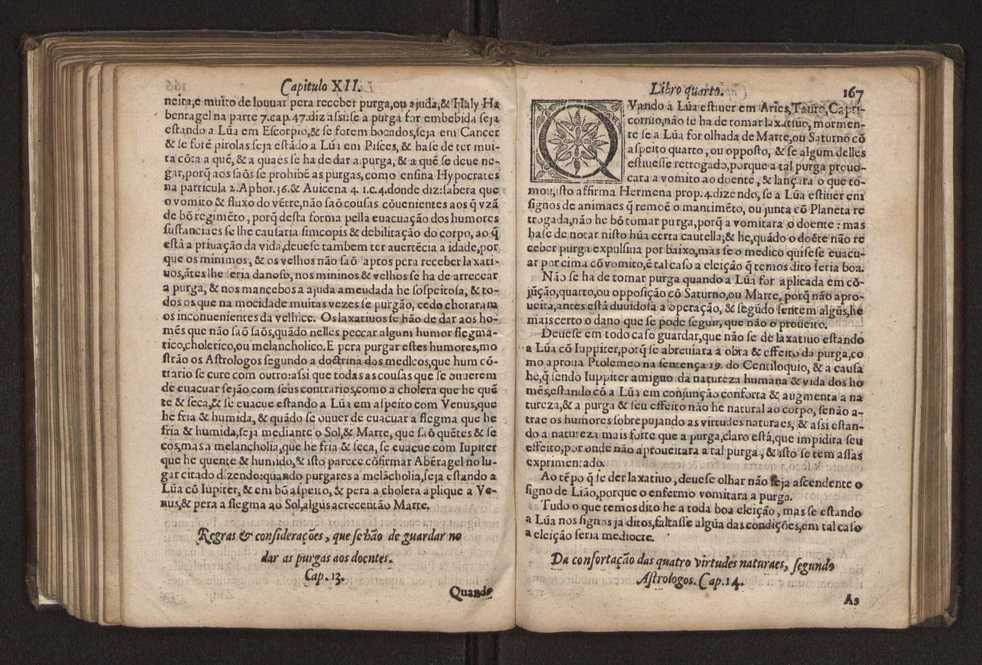 Capitulo XII.
neira, e muito de louvar pera receber purga, ou ajuda, & Haly Ha
benragel na parte 7. cap. 47. diz assi: se a purga for embebida seja
estando a Lũa em Escorpio, & se forem bocados, seja em Cancer
& se forẽ pirolas seja estãdo a Lũa em Pisces, & hase de ter mui-
ta cõta a quẽ, & a quaes se ha de dar a purga, & a quẽ se deve ne-
gar, porq̃ aos saõs se prohibẽ as purgas, como ensina Hypocrates
na particula 2. Aphor. 36. & Avicena 4. 1. c. 4. donde diz: sabera que
o vomito & fluxo do vẽtre, não saõ cousas cõuenientes aos q̃ vzã
de bõ regimẽto, porq̃ desta forma pella euacuação dos humores
sustanciaes se lhe causaria simcopis & debilitação do corpo, ao q̃
está a priuação da vida, deuese tambem ter auertẽcia a idade, por
que os mininos, & os velhos não saõ aptos pera receber laxati-
uos, ãtes lhe seria danoso, nos mininos & velhos se ha de arrecear
a purga, & nos mancebos a ajuda ameudada he sospeitosa, & to-
dos os que na mocidade muitas vezes se purgão, cedo choraram
os inconuenientes da velhice. Os laxatiuos se hão de dar aos ho-
mẽs que não saõ saõs, quãdo nelles peccar algum humor flegma-
tico, cholerico, ou melancholico. E pera purgar estes humores, mo
strão os Astrologos segundo a doctrina dos medicos, que hum cõ-
trario se cure com outro: assi que todas as cousas que se ouuerem
de euacuar sejão com seus contrarios, como a cholera que he quẽ
te & seca, & se euacue estando a Lũa em aspeito com Venus, que
he fria & humida, & quãdo se ouuer de euacuar a flegma que he
fria & humida, seja mediante o Sol, & Marte, que saõ quẽtes & se
cos, mas a melancholia, que he fria & seca, se euacue com Iupiter
que he quente & humido, & isto parece cõfirmar Abẽragel no lu-
gar citado dizendo: quando purgares a melãcholia, seja estando a
Lũa cõ Iupiter, & em bõ aspeito, & pera a cholera aplique a Ve-
nus, & pera a flegma ao Sol, algũs acrecentão Marte.
Regras & considerações, que se hão de guardar no
dar as purgas aos doentes.
Cap. 13.
Quando
Libro quarto. 167
QVando a Lũa estiuer em Aries, Tauro, Capri-
cornio, não se ha de tomar laxatiuo, mormen-
te se a Lũa for olhada de Marte, ou Saturno cõ
aspeito quarto, ou opposto, & se algum delles
estiuesse retrogado, porque a tal purga prouo-
cara a vomito ao doente, & lançara o que to-
mou, isto affirma Hermena prop. 4. dizendo, se a Lũa estiuer em
signos de animaes q̃ remoẽ o mantimẽto, ou junta cõ Planeta re
trogada, não he bõ tomar purga, porq̃ a vomitara o doente: mas
hase de notar nisto hũa certa cautella; & he, quãdo o doẽte não re
ceber purga expulsiua por baixo, mas se o medico quisese euacu-
ar por cima cõ vomito, ẽ tal caso a eleição q̃ temos dito seria boa.
Não se ha de tomar purga quando a Lũa for aplicada em cõ-
jũção, quarto, ou opposição cõ Saturno, ou Marte, porq̃ não apro-
ueita, antes está duuidosa a operação, & segũdo sentem algũs, he
mais certo o dano que se pode seguir, que não o proueito.
Deuese em todo caso guardar, que não se de laxatiuo estando
a Lũa cõ Iuppiter, porq̃ se abreuiara a obra & effeito da purga, co
mo aproua Ptolemeo na sentença 19. do Centiloquio, & a causa
he, q̃ sendo Iuppiter amiguo da natureza humana & vida dos ho
mẽs, estando cõ a Lũa em conjunção conforta & augmenta a na
tureza, & a purga & seu effeito não he natural ao corpo, senão a-
trae os humores sobrepujando as virtudes naturaes, & assi estan-
do a natureza mais forte que a purga, claro está, que impidira seu
effeito, por onde não aproueitara a tal purga, & isto se tem assas
exprimentado.
Ao tẽpo q̃ se der laxatiuo, deuese olhar não seja ascendente o
signo de Lião, porque o enfermo vomitara a purga.
Tudo o que temos dito he a toda boa eleição, mas se estando
a Lũa nos signos ja ditos, faltasse algũa das condições, em tal caso
a eleição seria mediocre.
Da confortação das quatro virtudes naturaes, segundo
Astrologos. Cap. 14.
As